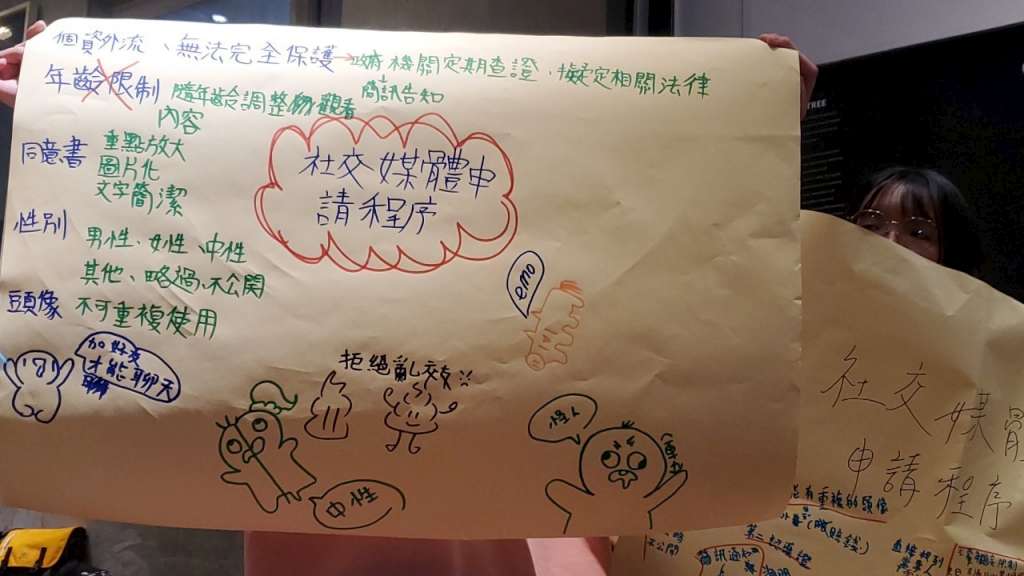 個資外流、無法完全保護→政府機關定期查證,擬定相關法律
簡訊告知
年齡限制 隨年齡調整物觀看
內容
同意書 重點放大
圖片化
文字簡潔
社交媒體申
請程序
性別 男性、女性、中性
其他、略過、不公開
頭像 不可重複使用
加好友
才能聊天
emo
拒絕亂交友
中性
怪人
社交媒體
申請程序
有重複的頭像
FREE